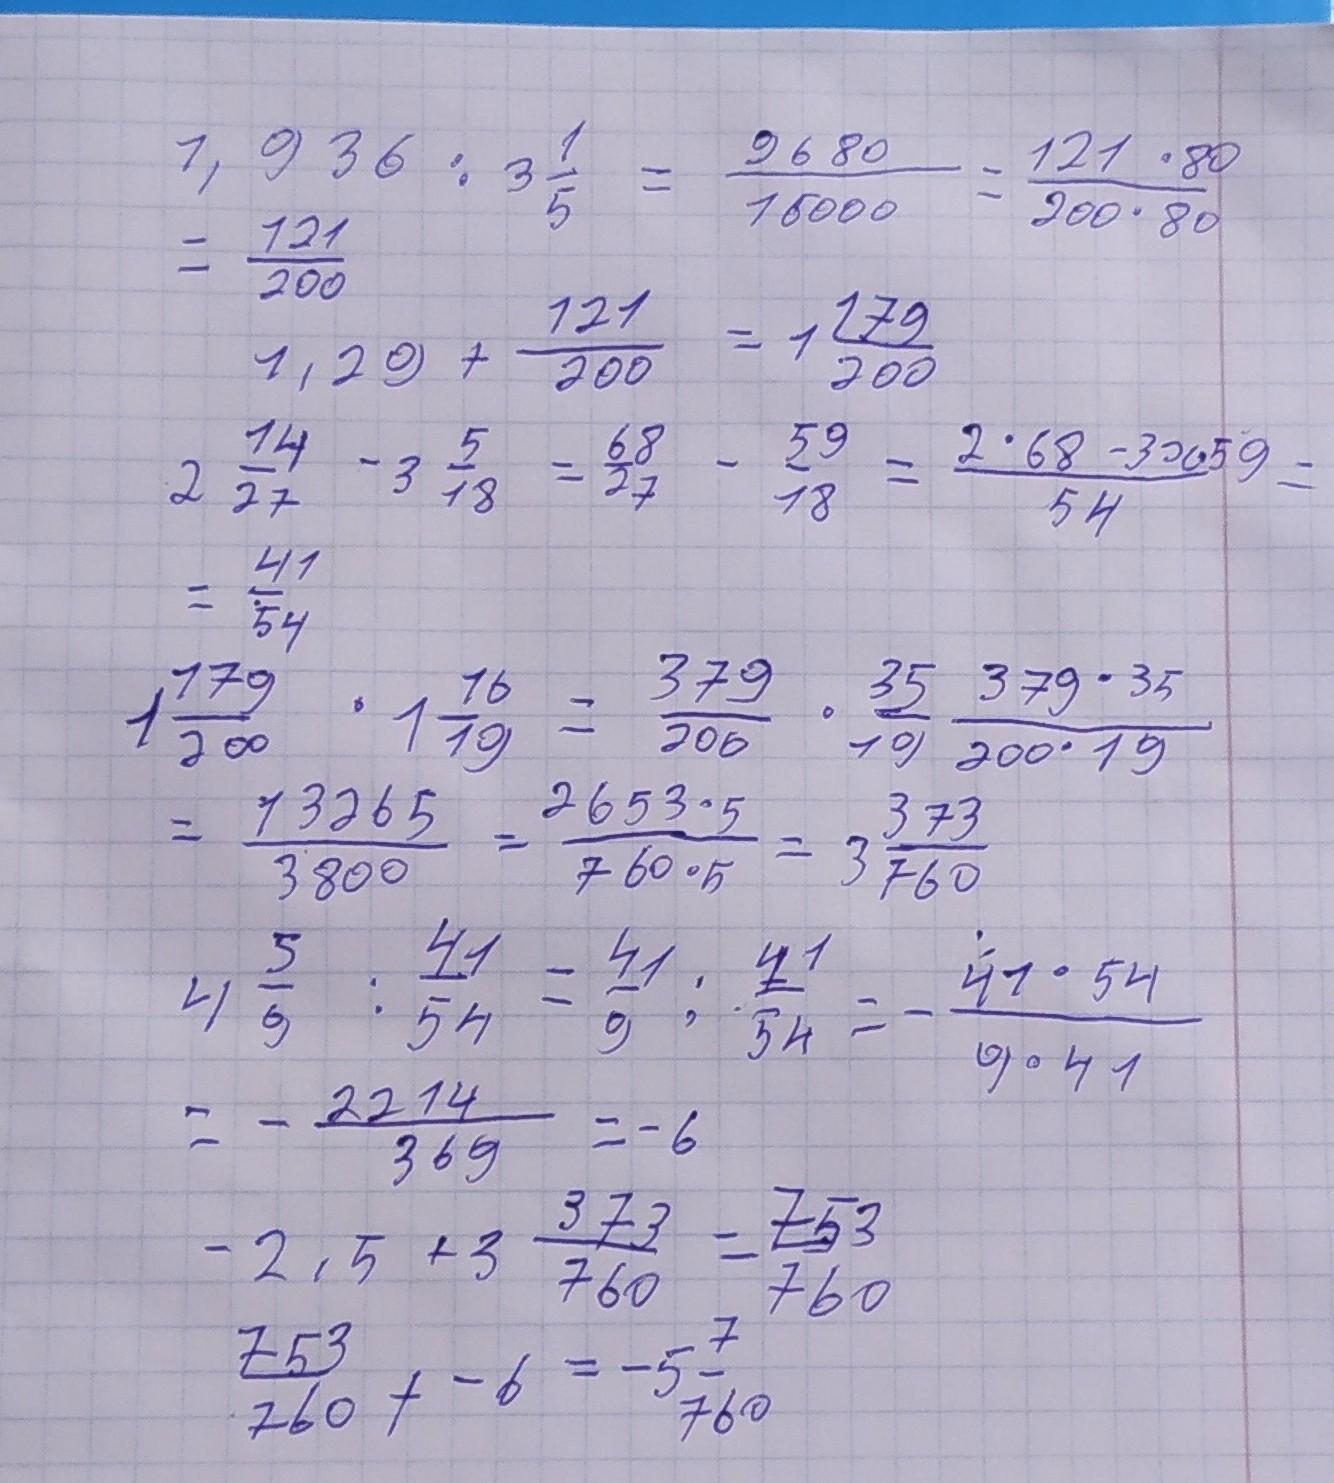 1,936 : 3 1/5 = 9680/16000 = 121·80/200·80
= 121/200
1,29 + 121/200 = 1 179/200
2 14/27 - 3 5/18 = 68/27 - 59/18 = 2·68 - 3·59/54 =
= 41/54
1 179/200 · 1 16/19 = 379/200 · 35/19 379·35/200·19
= 13265/3800 = 2653·5/760·5 = 3 373/760
4 5/9 : 41/54 = 41/9 : 41/54 = - 41·54/9·41
= - 2214/369 = -6
-2,5 + 3 373/760 = 753/760
753/760 + -6 = -5 7/760